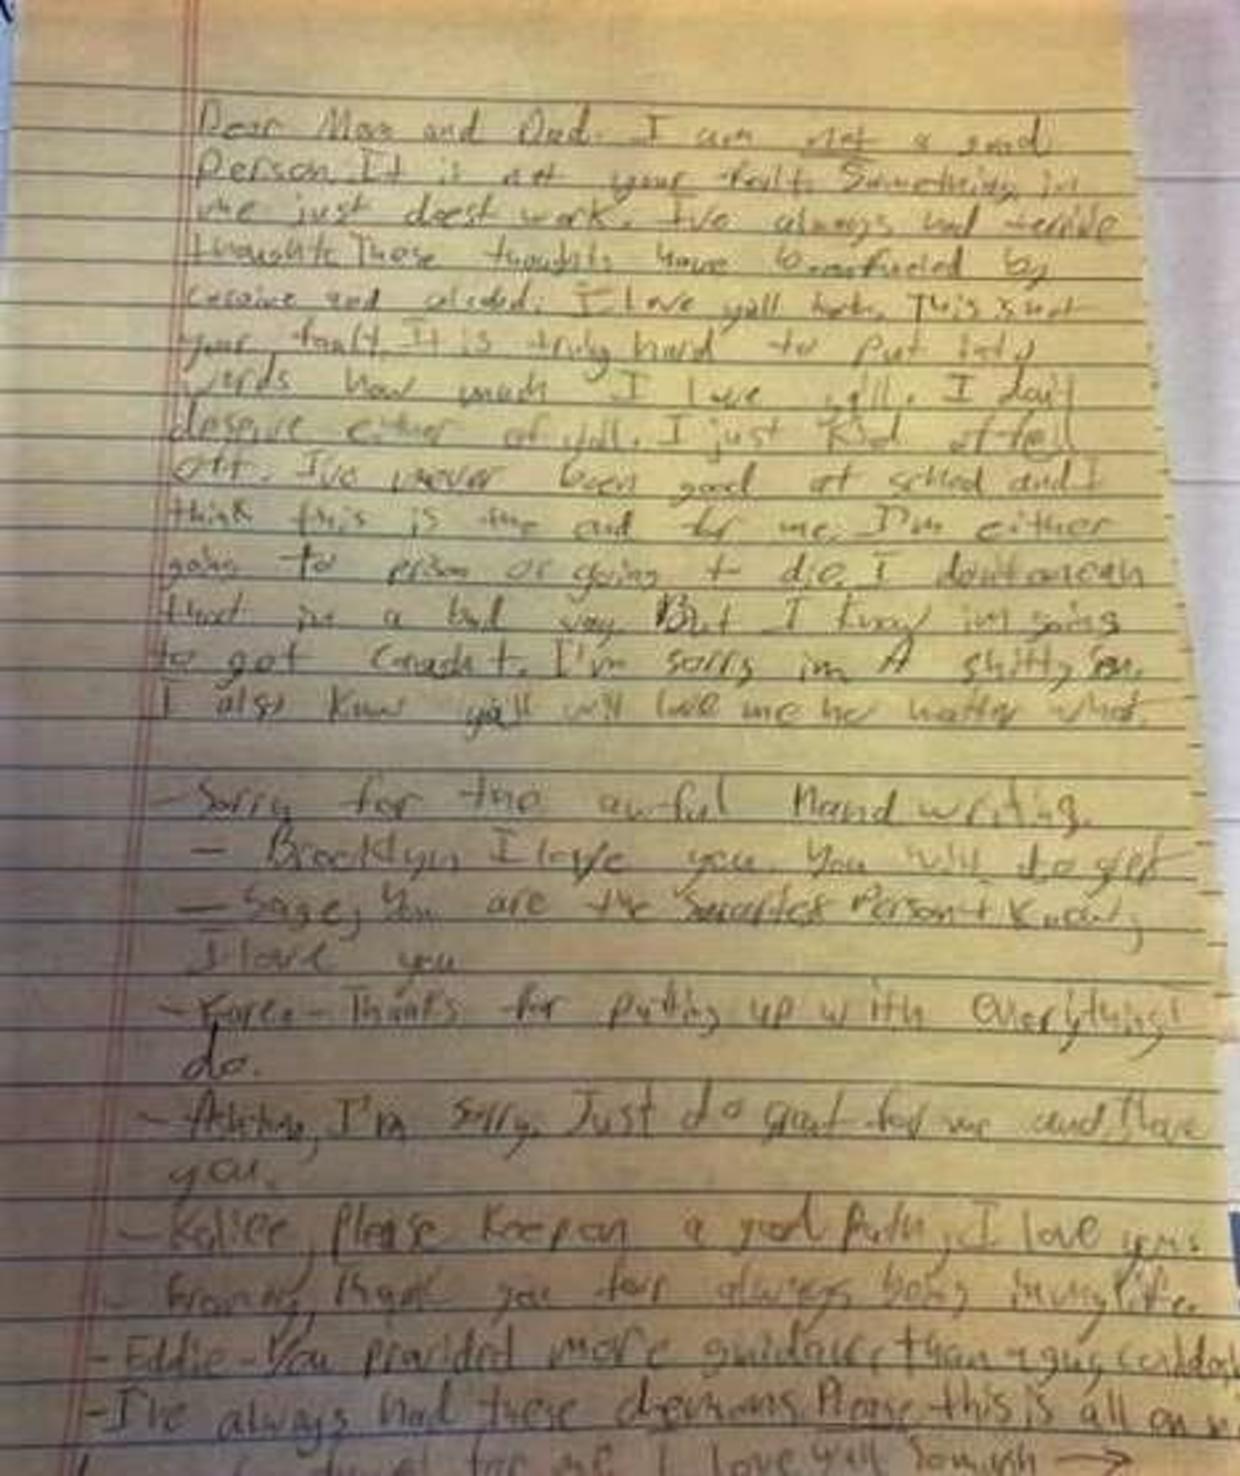 Dear Mom and Dad. I am not a good
person. It is not your fault. Something in
me just doest work. I've always had terrible
thoughts. These thoughts have been fueled by
cocaine and alcohol. I love yall both. This is not
your fault. It is truly hard to put into
words how much I love yall. I don't
deserve either of yall. I just kind of fell
off. I've never been good at school and I
think this is the end for me. I'm either
going to prison or going to die. I dont mean
that in a bad way. But I know im going
to get caught. I'm sorry im A shitty Son.
I also know ya'll will love me no matter what.
- Sorry for the awful Hand writing.
- Brooklyn I love you. You will do
- Sage, You are the Person I know,
I love you
- Thanks for putting up with everything I
do.
- I'm sorry. Just do good for me and I love
you.
- Please Keep on a good Path, I love you
- thank you for always being in my life.
- Eddie - You provided more guidance than a guy could
- I've always had these demons. Please this is all on
for me I love yall So much →